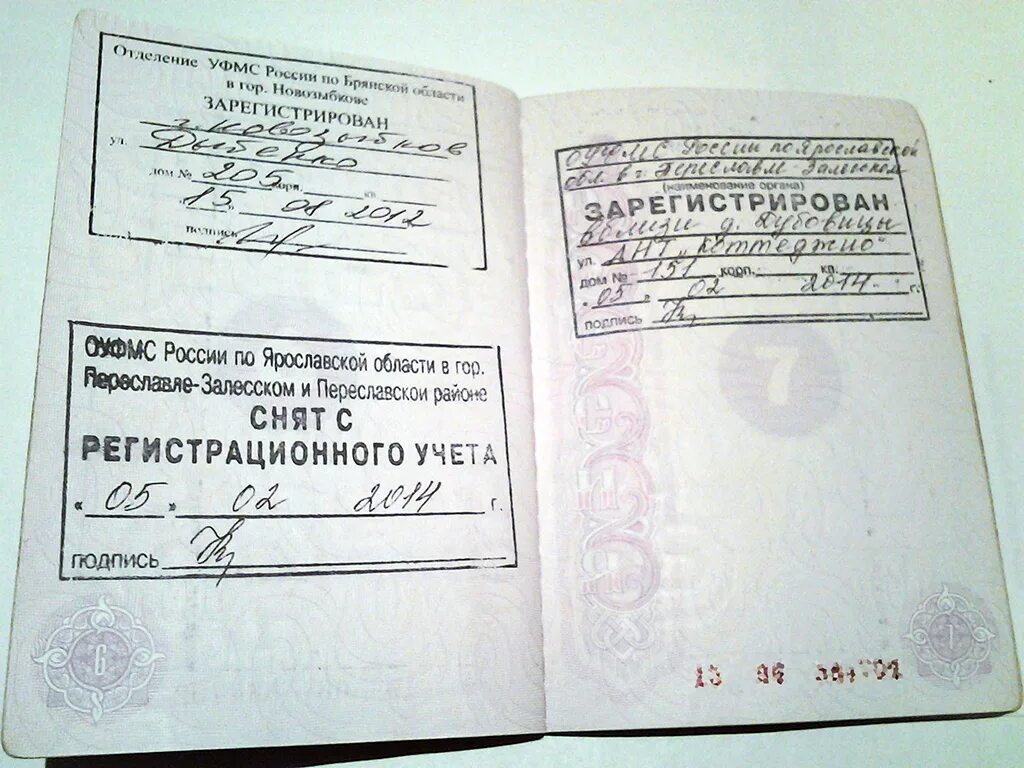 Отделение УФМС России по Брянской области
в гор. Новозыбкове
ЗАРЕГИСТРИРОВАН
г. Новозыбков
ул. Дыбенко
дом № 205 корп. кв.
"15" 08 2012
подпись
ОУФМС России по Ярославской области в гор.
Переславле-Залесском и Переславской районе
СНЯТ С
РЕГИСТРАЦИОННОГО УЧЕТА
«05» 02 2014 г.
подпись
6
ОУФМС России по Ярославской
обл. в г. Переславле-Залесском
(наименование органа)
ЗАРЕГИСТРИРОВАН
вблизи д. Дубовицы
ул. ДНТ „Коттеджио"
дом № 151 корп. кв.
"05" 02 2014 г.
подпись
7
7